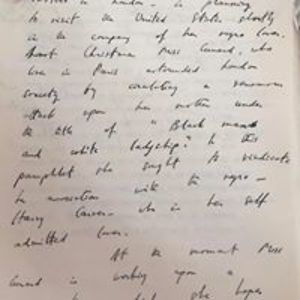 in London - is planning
to visit the United States shortly
in the company of her negro lover.
About Christmas Miss Cunard, who
lives in Paris astounded London
society by circulating a venomous
attack upon her mother under
the title of "Black man
and white ladyship" In this
pamphlet she sought to vindicate
her association with the negro -
Henry Crowder - who is her self
admitted lover.
At the moment Miss
Cunard is working upon a
which she hopes